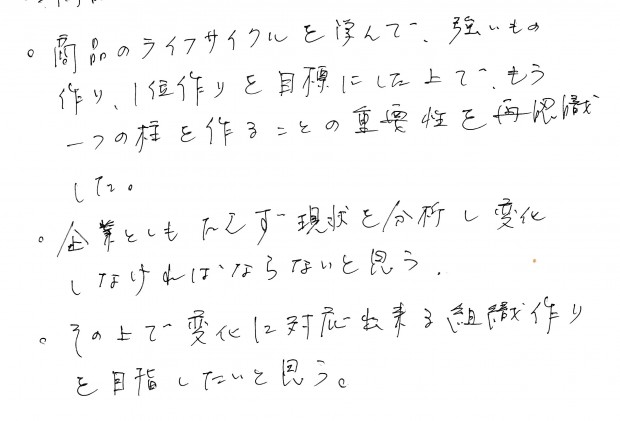 。商品のライフサイクルを学んで、強いもの
作り、1位作りを目標にした上で、もう
一つの柱を作ることの重要性を再認識
した。
。企業としもたえず現状を分析し変化
しなければならないと思う.
。その上で変化に対応出来る組織作り
を目指したいと思う。